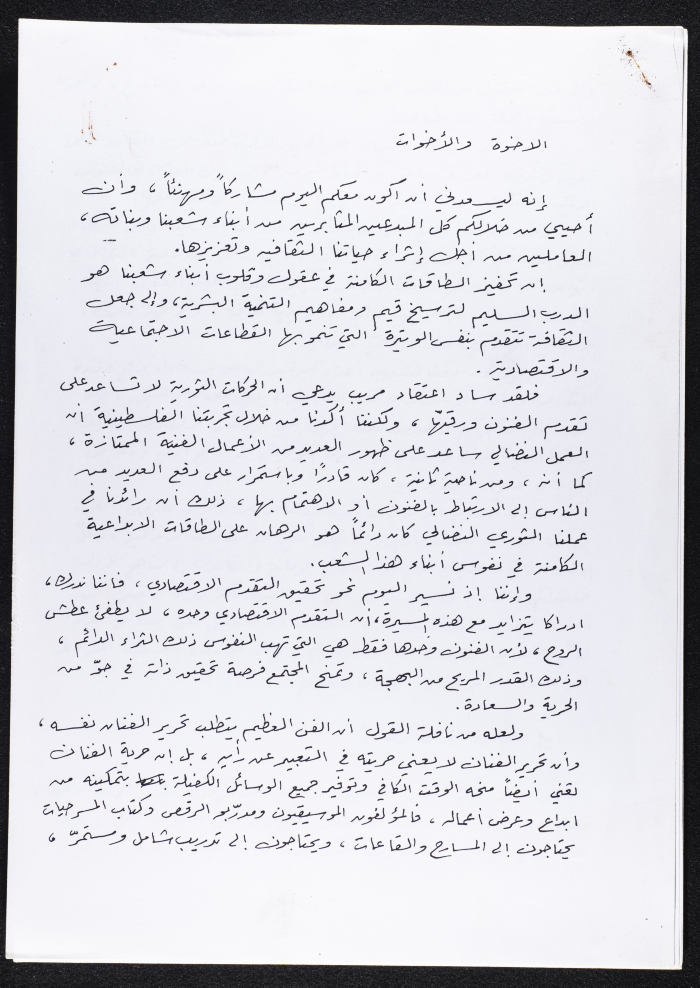 الاخوة والأخوات
إنه ليسعدني أن أكون معكم اليوم مشاركاً ومهنئاً ، وأن
أحيي من خلالكم كل المبدعين المثابرين من أبناء شعبنا وبناته ،
العاملين من أجل إثراء حياتنا الثقافية وتعزيزها.
ان تحفيز الطاقات الكامنة في عقول وقلوب أبناء شعبنا هو
الدرب السليم لترسيخ قيم ومفاهيم التنمية البشرية، وإلى جعل
الثقافة تتقدم بنفس الوتيرة التي تنمو بها القطاعات الاجتماعية
والاقتصادية .
فلقد ساد اعتقاد مريب يدعي أن الحركات الثورية لا تساعد على
تقدم الفنون ورقيّها ، ولكننا أكدنا من خلال تجربتنا الفلسطينية ان
العمل النضالي ساعد على ظهور العديد من الأعمال الفنية الممتازة ،
كما أنه ، ومن ناحية ثانية ، كان قادرًا وباستمرار على دفع العديد من
الناس إلى الارتباط بالفنون أو الاهتمام بها ، ذلك أن رائدنا في
عملنا الثوري النضالي كان دائماً هو الرهان على الطاقات الابداعية
الكامنة في نفوس أبناء هذا الشعب.
وإننا إذ نسير اليوم نحو تحقيق التقدم الاقتصادي ، فاننا ندرك ،
ادراكا يتزايد مع هذه المسيرة، أن التقدم الاقتصادي وحده ، لا يطفئ عطش
الروح ، لأن الفنون وحدها فقط هي التي تهب النفوس ذلك الثراء الدائم ،
وذلك القدر المريح من البهجة ، وتمنح المجتمع فرصة تحقيق ذاته في جوّ من
الحرية والسعادة.
ولعله من نافلة القول أن الفن العظيم يتطلب تحرير الفنان نفسه ،
وأن تحرير الفنان لا يعني حريته في التعبير عن رأيه ، بل إن حرية الفنان
تعني أيضاً منحه الوقت الكافي وتوفير جميع الوسائل الكفيلة بتمكينه من
ابداع وعرض أعماله ، فالمؤلفون الموسيقيون ومدرّبو الرقص وكتاب المسرحيات
يحتاجون إلى المسارح والقاعات ، ويحتاجون إلى تدريب شامل ومستمرّ ،